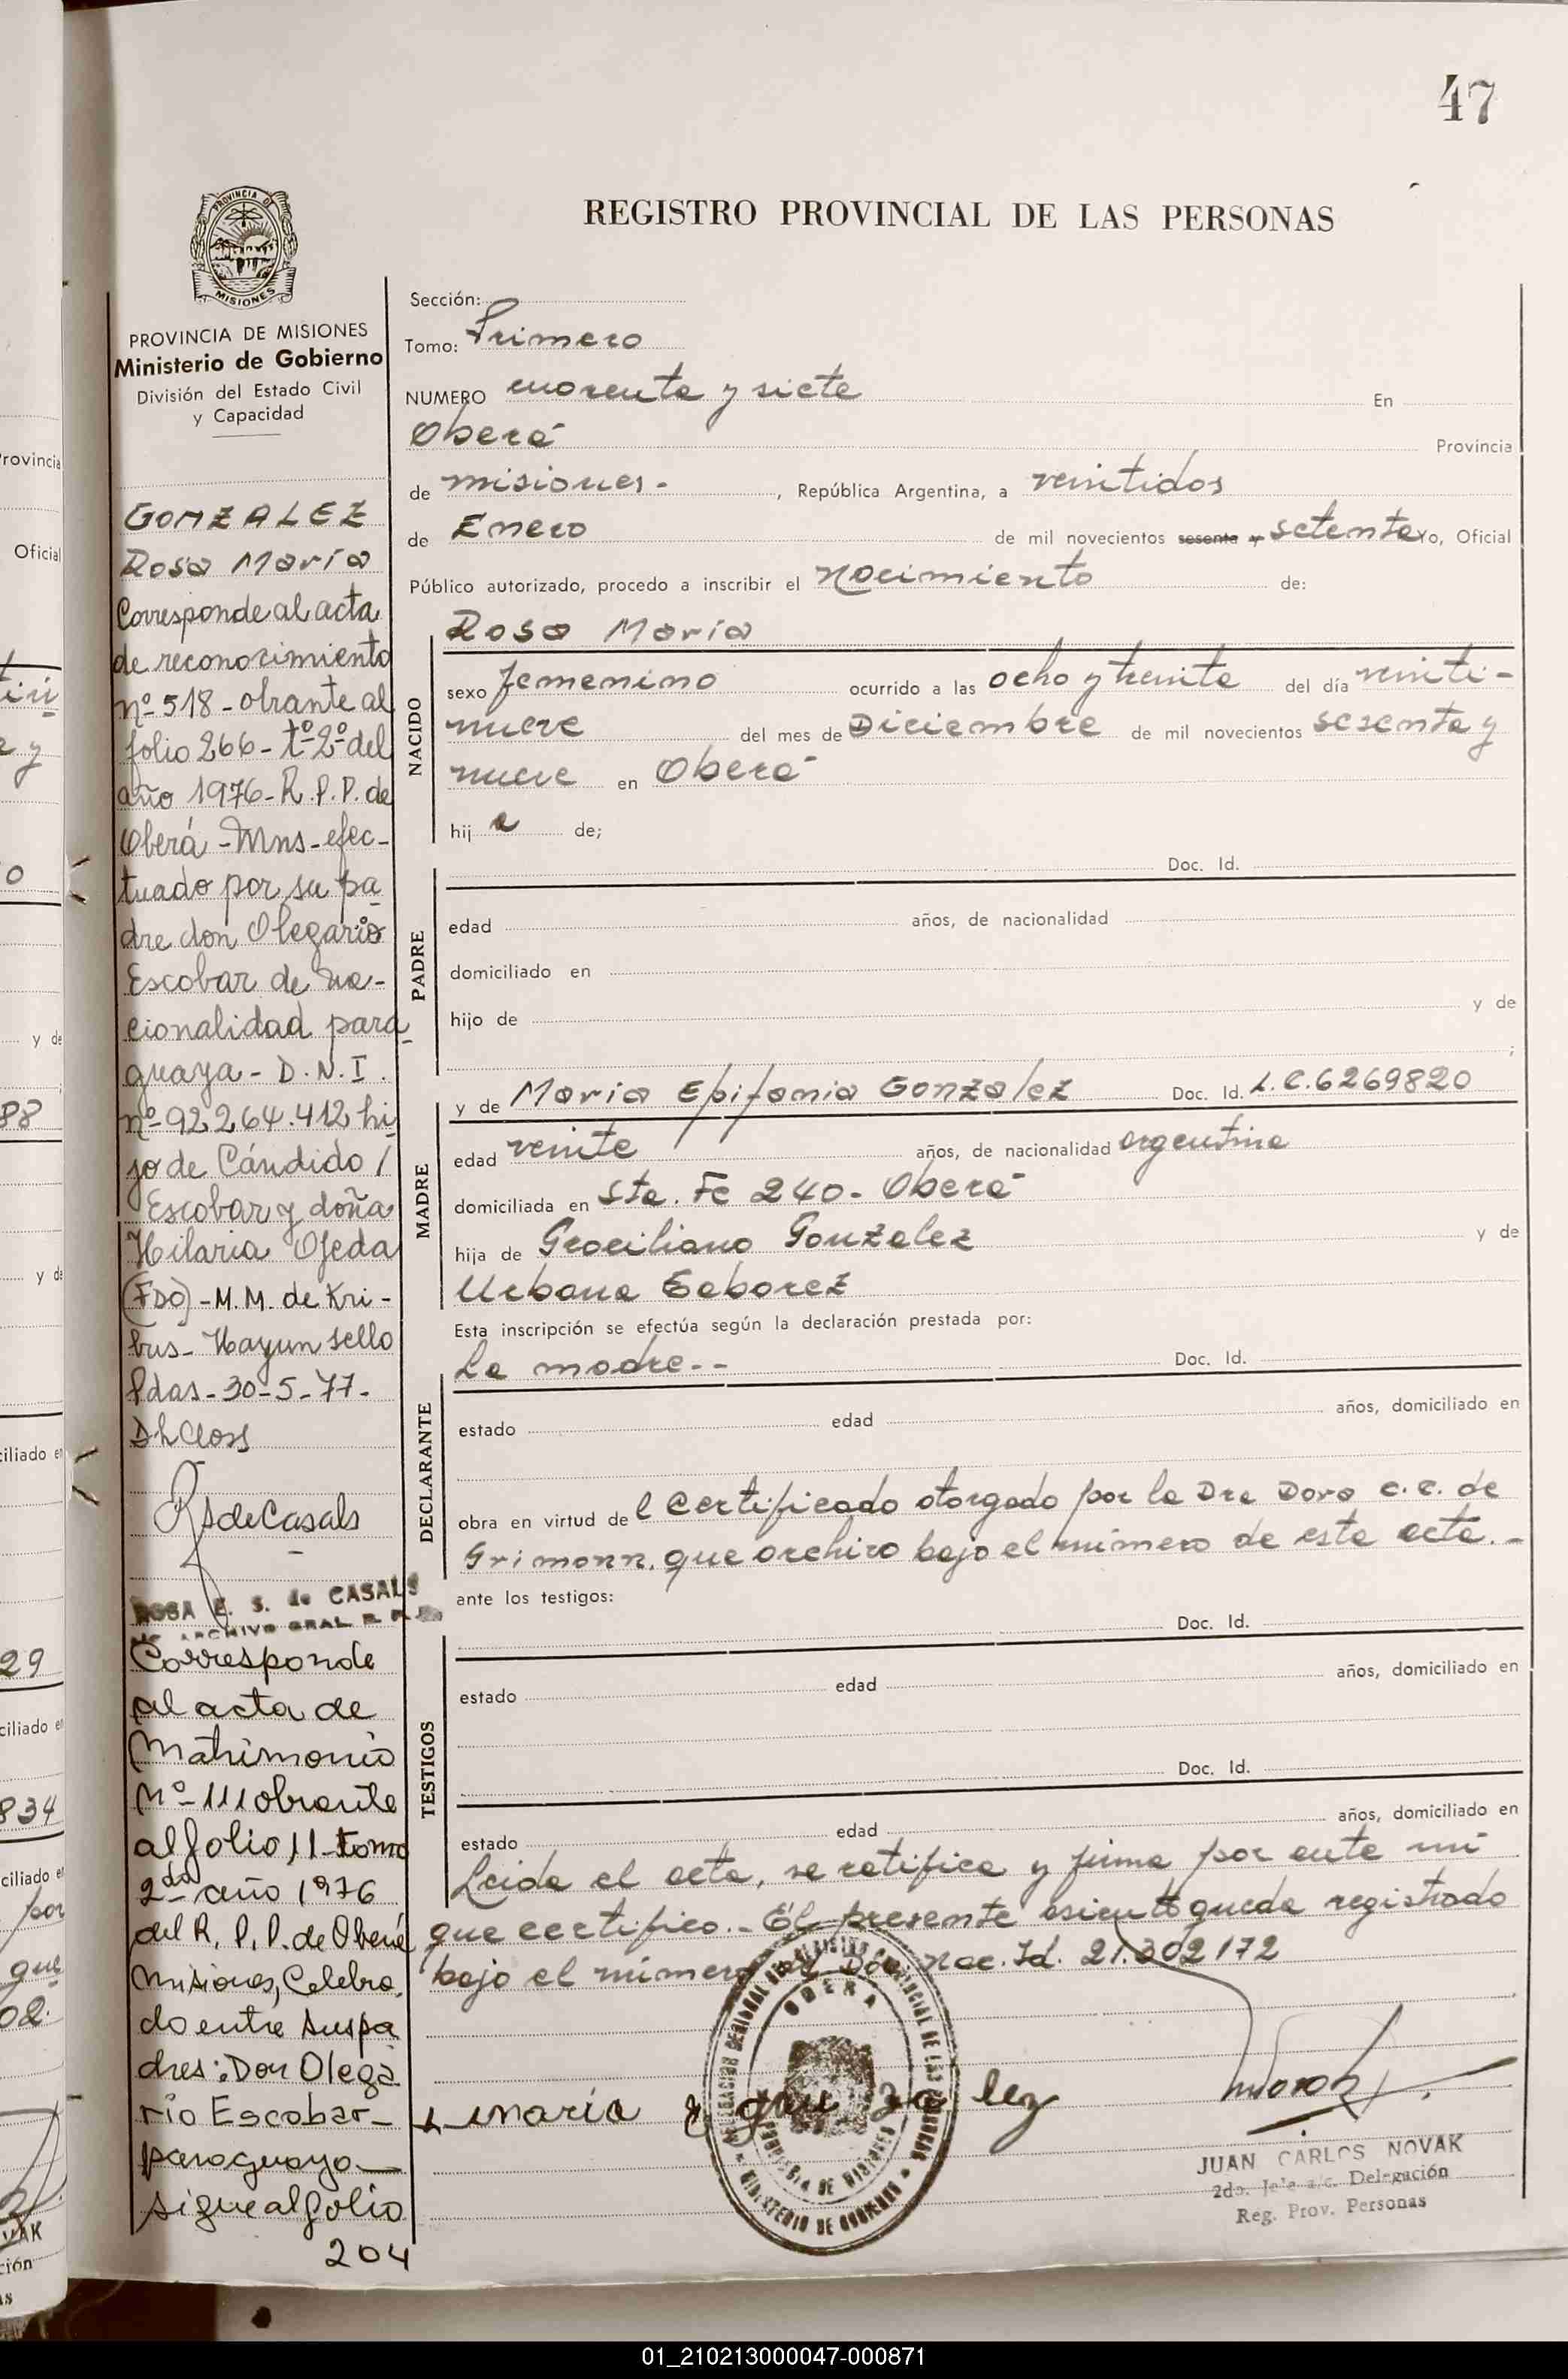 47
REGISTRO PROVINCIAL DE LAS PERSONAS
PROVINCIA DE
MISIONES
PROVINCIA DE MISIONES
Ministerio de Gobierno
División del Estado Civil
y Capacidad
GONZALEZ
Rosa María
Corresponde al acta
de reconocimiento
nº 518 - obrante al
folio 266 - tº 2º del
año 1976 - R. P. P. de
Oberá - Mns - efec-
tuado por su pa
dre don Olegario
Escobar de na-
cionalidad para
guaya - D.N.I.
nº 92.264.412 hi
jo de Cándido /
Escobar y doña
Hilaria Ojeda
(FDO) - M.M. de Kri-
bus - Hay un sello
Pdas - 30-5-77-
RSdeCasals
ROSA E. S. de CASALS
ARCHIVO GRAL. R. P.
Corresponde
al acta de
Matrimonio
Nº 111 obrante
al folio 11 - tomo
2do año 1976
del R. P. P. de Oberá
Misiones, Celebra
do entre sus pa
dres: Don Olega
rio Escobar -
paraguayo -
sigue al folio
204
Sección:
Tomo: Primero
NUMERO cuarenta y siete En
Oberá Provincia
de misiones. - , República Argentina, a veintidos
de Enero de mil novecientos sesenta y setenta Yo, Oficial
Público autorizado, procedo a inscribir el nacimiento de:
Rosa María
NACIDO
sexo femenino ocurrido a las ocho y treinta del día veinti-
nueve del mes de Diciembre de mil novecientos sesenta y
nueve en Oberá
hij a de;
PADRE
Doc. Id.
edad años, de nacionalidad
domiciliado en
hijo de y de
;
MADRE
y de María Epifania Gonzalez Doc. Id. L.C. 6269820
edad veinte años, de nacionalidad argentina
domiciliada en Sta. Fe 240 - Oberá
hija de Graciliano Gonzalez y de
Urbana
Esta inscripción se efectúa según la declaración prestada por:
DECLARANTE
La madre.-- Doc. Id.
estado edad años, domiciliado en
obra en virtud del Certificado otorgado por la Dra Dora C. C. de
Grimonn, que archivo bajo el número de este acta.-
ante los testigos:
TESTIGOS
Doc. Id.
estado edad años, domiciliado en
Doc. Id.
estado edad años, domiciliado en
Leida el acta, se ratifica y firma por ante mi
que certifico.- El presente asiento queda registrado
bajo el número del Doc. Nac. Id. 21.302172
OBERA
maria e gonzalez
JUAN CARLOS NOVAK
2do. Jefe a/c. Delegación
Reg. Prov. Personas
01_210213000047-000871